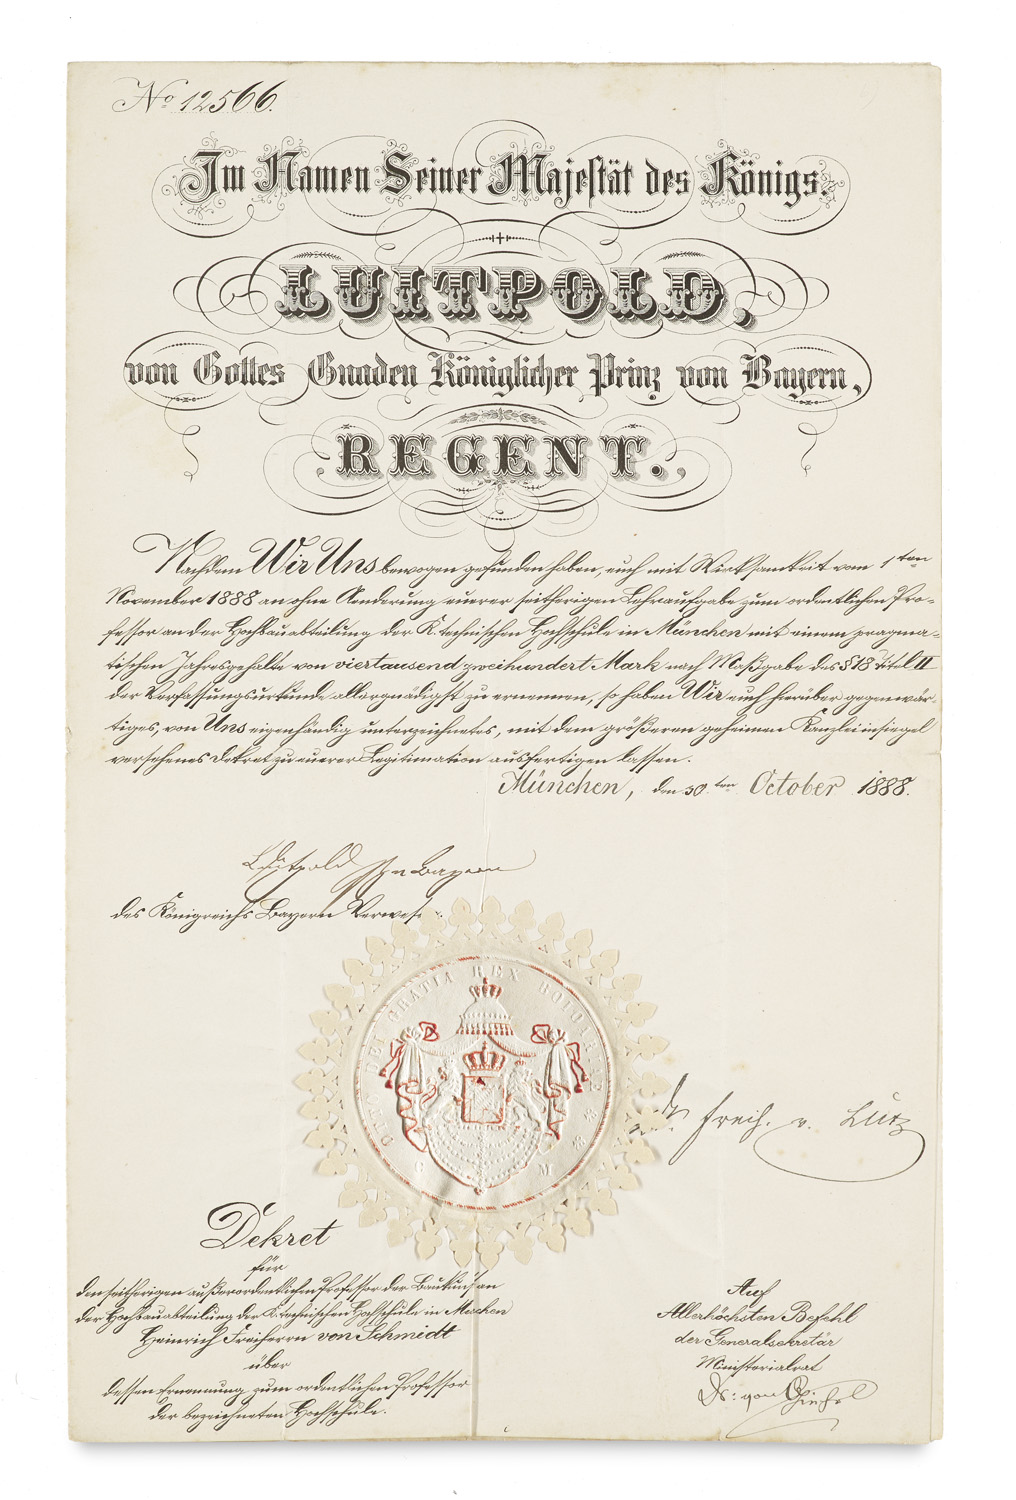 No 12566.
Im Namen Seiner Majestät des Königs.
LUITPOLD,
von Gottes Gnaden Königlicher Prinz von Bayern,
REGENT.
Nachdem Wir Uns bewogen gefunden haben, euch mit Wirksamkeit vom 1ten
November 1888 an ohne Aenderung euerer seitherigen Lehraufgabe zum ordentlichen Pro-
fessor an der Hochbauabteilung der K. technischen Hochschule in München mit einem pragma-
tischen Jahresgehalte von viertausend zweihundert Mark nach Maßgabe des § 18 Titel II
der Verfassungsurkunde allergnädigst zu ernennen, so haben Wir euch hierüber gegenwär-
tiges, von Uns eigenhändig unterzeichnetes, mit dem größeren geheimen Kanzleiinsiegel
versehenes Dekret zu euerer Legitimation ausfertigen lassen.
München, den 30.ten October 1888.
Luitpold Prz v Bayern
des Königreichs Bayern Verweser
OTTO DEI GRATIA REX BOIOARIAE
Dr. Freih. v. Lutz
Dekret
für
den seitherigen außerordentlichen Professor der Baukunst an
der Hochbauabteilung der K. technischen Hochschule in München
Heinrich Freiherrn von Schmidt
über
dessen Ernennung zum ordentlichen Professor
der bezeichneten Hochschule.
Auf
Allerhöchsten Befehl
der Generalsekretär
Ministerialrat
Dr: von